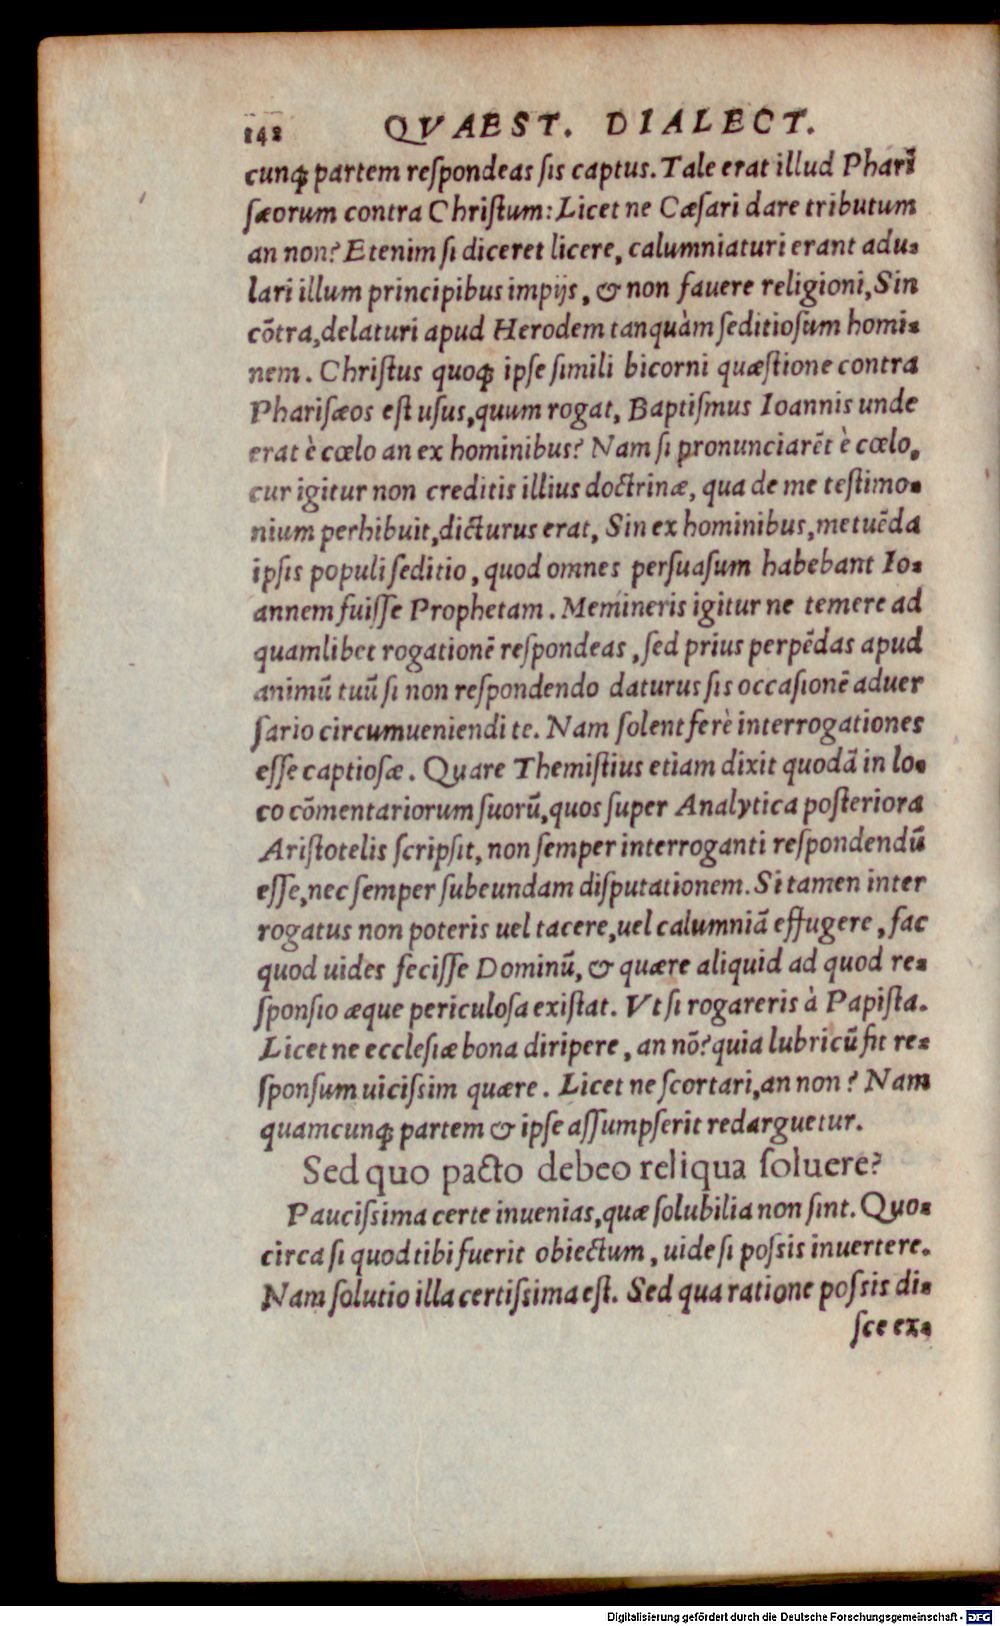 142 QVAEST. DIALECT.
cunq; partem reſpondeas ſis captus. Tale erat illud Phari
ſæorum contra Chriſtum: Licet ne Cæſari dare tributum
an non? Etenim ſi diceret licere, calumniaturi erant adu-
lari illum principibus impijs, & non fauere religioni, Sin
cōtra, delaturi apud Herodem tanquàm ſeditioſum homi-
nem. Chriſtus quoq; ipſe ſimili bicorni quæſtione contra
Phariſæos eſt uſus, quum rogat, Baptiſmus Ioannis unde
erat è cœlo an ex hominibus? Nam ſi pronunciarēt è cœlo,
cur igitur non creditis illius doctrinæ, qua de me teſtimo-
nium perhibuit, dicturus erat, Sin ex hominibus, metuēda
ipſis populi ſeditio, quod omnes perſuaſum habebant Io-
annem fuiſſe Prophetam. Memineris igitur ne temere ad
quamlibet rogationē reſpondeas, ſed prius perpēdas apud
animū tuū ſi non reſpondendo daturus ſis occaſionē aduer
ſario circumueniendi te. Nam ſolent ferè interrogationes
eſſe captioſæ. Quare Themiſtius etiam dixit quodā in lo-
co cōmentariorum ſuorū, quos ſuper Analytica poſteriora
Ariſtotelis ſcripſit, non ſemper interroganti reſpondendū
eſſe, nec ſemper ſubeundam diſputationem. Si tamen inter
rogatus non poteris uel tacere, uel calumniā effugere, fac
quod uides feciſſe Dominū, & quære aliquid ad quod re-
ſponſio æque periculoſa exiſtat. Vt ſi rogareris à Papiſta.
Licet ne eccleſiæ bona diripere, an nō? quia lubricū fit re-
ſponſum uiciſsim quære. Licet ne ſcortari, an non? Nam
quamcunq; partem & ipſe aſſumpſerit redarguetur.
Sed quo pacto debeo reliqua ſoluere?
Pauciſsima certe inuenias, quæ ſolubilia non ſint. Quo-
circa ſi quod tibi fuerit obiectum, uide ſi poſsis inuertere.
Nam ſolutio illa certiſsima eſt. Sed qua ratione poſsis di-
ſce ex-
Digitalisierung gefördert durch die Deutsche Forschungsgemeinschaft - DFG